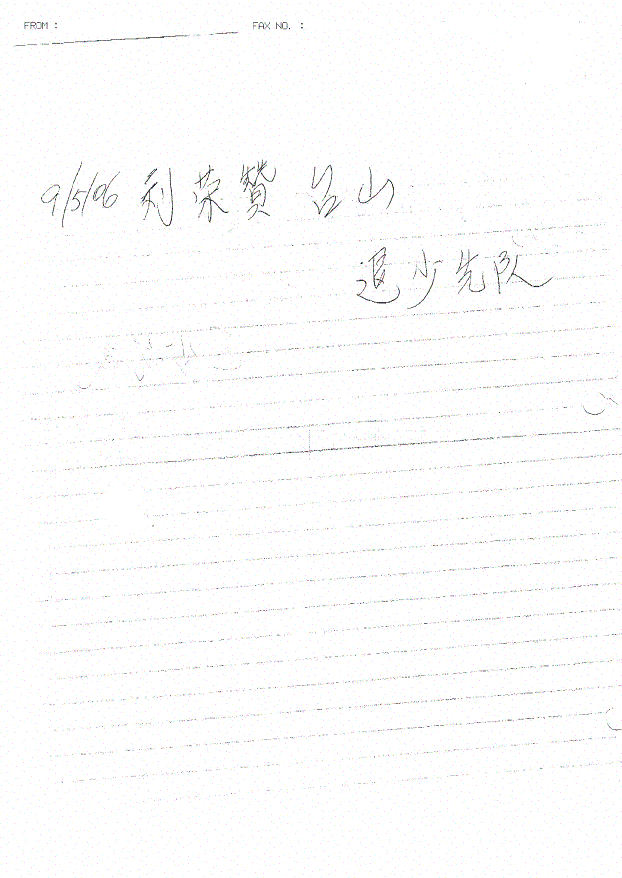 FROM : FAX NO. :
9/5/06 利荣贊 台山
退少先队